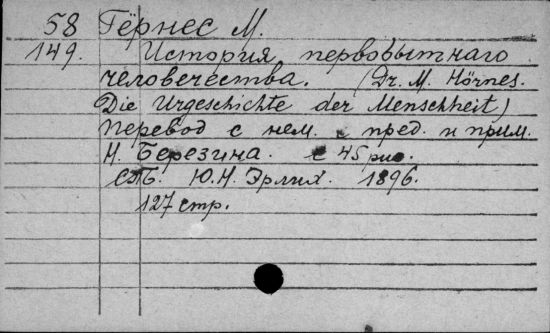 58 Гёрнес М.
149. История первобытнаго
человечества. (Dr. M. Hörnes.
Die Urgeschichte der Menschheit)
Перевод с нем. с пред. и прим.
Н. Березина. с 45 рис.
СПБ. Ю.Н. Эрлих. 1896.
127 стр.